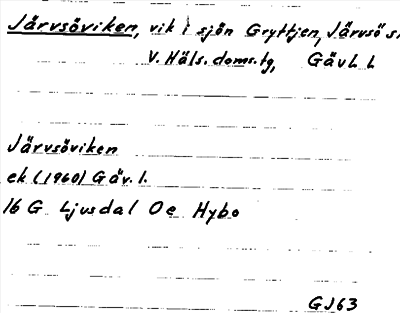 Järvsöviken, vik i sjön Gryttjen, Järvsö s.
V. Häls. doms.tg, GävL L
Järvsöviken
ek (1960) Gäv. l.
16 G Ljusdal Oe Hybo
GJ63